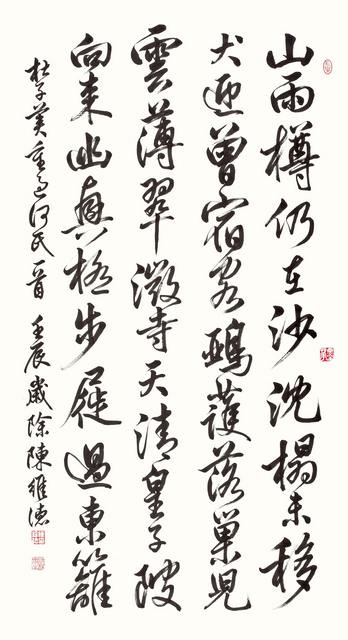 山雨樽仍在沙沈榻未移
犬迎曾宿客鴉護落巢兒
雲薄翠微寺天清皇子陂
向來幽興極步屣過東籬
杜子美重過何氏一首 壬辰歲除陳維德